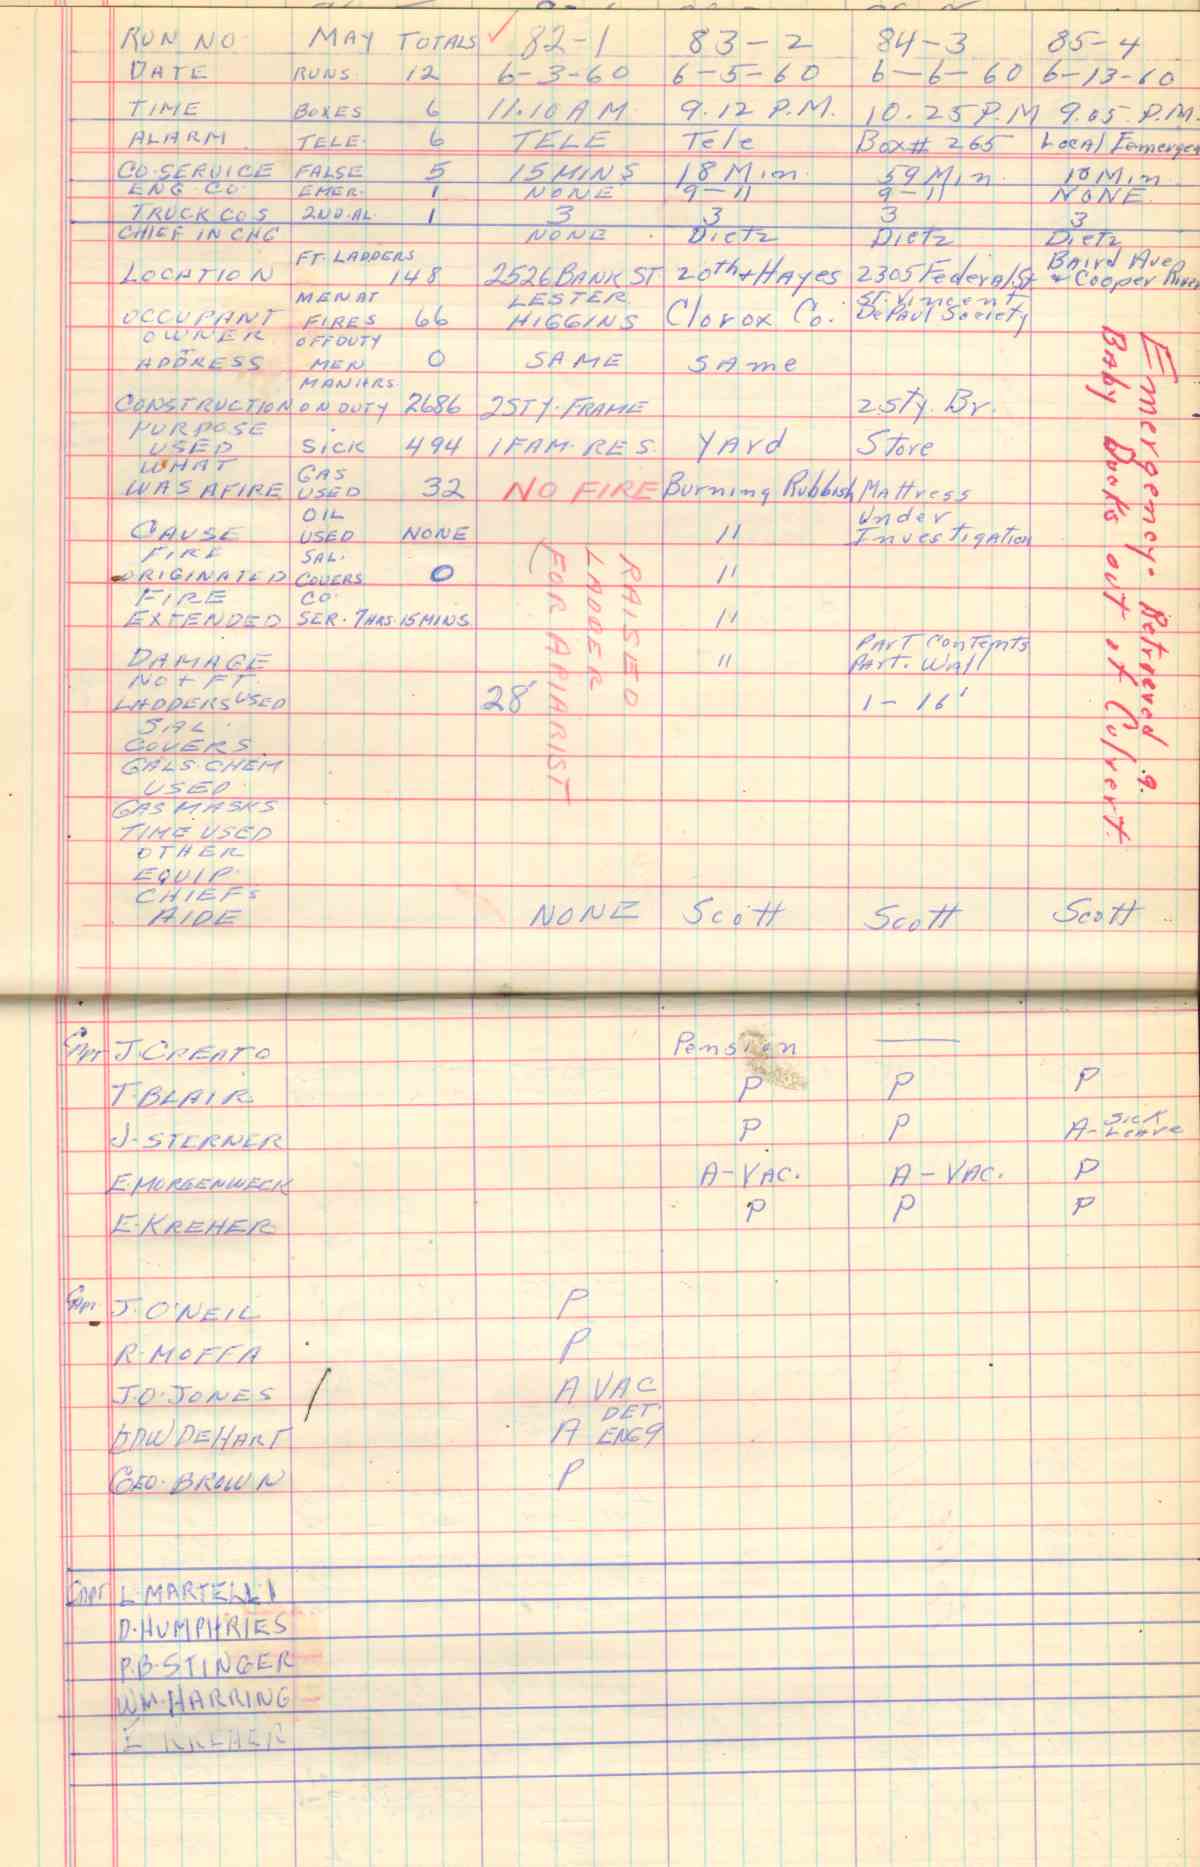 RUN NO MAY TOTALS ✓ 82-1 83-2 84-3 85-4
DATE RUNS. 12 6-3-60 6-5-60 6-6-60 6-13-60
TIME BOXES 6 11.10 AM 9.12 P.M. 10.25 P.M 9.05 P.M.
ALARM TELE. 6 TELE Tele Box# 265 Local Emergen
CO. SERVICE FALSE 5 15 MINS 18 Min. 59 Min. 18 Min.
ENG. CO. EMER. 1 NONE 9-11 9-11 NONE
TRUCK COS 2ND. AL. 1 3 3 3 3
CHIEF IN CHG NONE Dietz Dietz Dietz
LOCATION FT. LADDERS 148 2526 BANK ST 20th + Hayes 2305 Federal St Baird Ave & Cooper River
OCCUPANT MEN AT FIRES 66 LESTER HIGGINS Clorox Co. St. Vincent DePaul Society
OWNER + ADDRESS OFF DUTY MEN 0 SAME SAme
CONSTRUCTION MANHRS. ON DUTY 2686 2STY. FRAME 2 Sty. Br.
PURPOSE USED SICK 494 1 FAM. RES. YArd Store
WHAT WAS AFIRE GAS USED 32 NO FIRE Burning Rubbish Mattress
CAUSE OIL USED NONE " Under Investigation
FIRE ORIGINATED SAL. COVERS 0 "
FIRE EXTENDED CO. SER. 7 HRS. 15 MINS "
DAMAGE " PArT ConTenTs PArT. WAll
NO + FT. LADDERS USED 28' 1-16'
SAL. COVERS
GALS. CHEM USED.
GAS MASKS
TIME USED
OTHER EQUIP.
CHIEFS AIDE NONE Scott Scott Scott
RAISED
LADDER
(FOR APIARIST
Emergency- Retrieved 9.
BAby Ducks out of Culvert.
Capt J. CREATO Pension —
T. BLAIR P P P
J. STERNER P P A- Sick Leave
E. MORGENWECK A-VAC. A-VAC. P
E. KREHER P P P
Capt. J. O'NEIL P
R. MOFFA P
J.O. JONES A VAC
EDW DEHART A DET. ENG 9
GEO. BROWN P
Capt L. MARTELLI
D. HUMPHRIES
P.B. STINGER
WM. HARRING
E KREHER